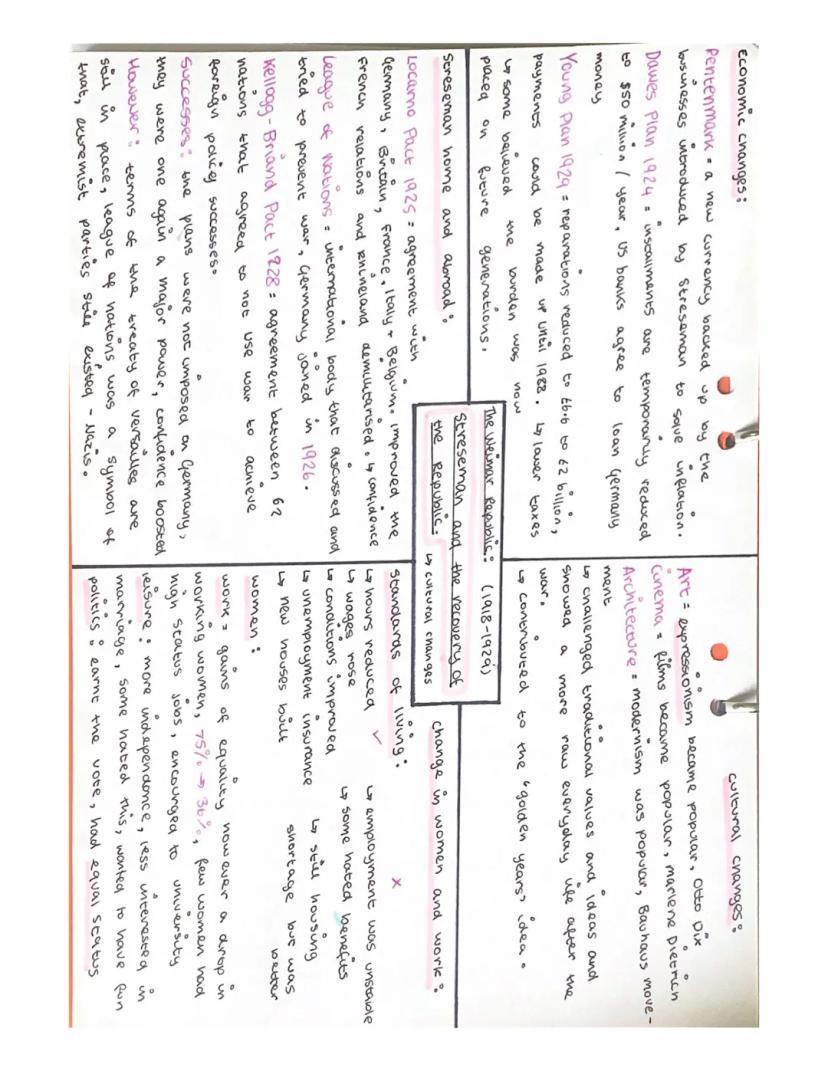 economic changes:
Rentenmark = a new currency backed up by the
businesses introduced by Streseman to solve inflation.
Dawes Plan 1924 = installments are temporarily reduced
to $50 million / year, US banks agree to loan Germany
money
Young Plan 1929 = reparations reduced to £6.6 to £2 billion,
payments could be made up until 1988. ↳ lower taxes
↳ some believed the burden was now
placed on future generations.
Streseman home and abroad:
Locarno Pact 1925 = agreement with
Germany, Britain, France, Italy + Belgium. improved the
French relations and Rhineland demilitarised. ↳ confidence
League of Nations = international body that discussed and
tried to prevent war, Germany joined in 1926.
Kellogg-Briand Pact 1928 = agreement between 62
nations that agreed to not use war to achieve
foreign policy successes.
Successes: the plans were not imposed on Germany,
they were one again a major power, confidence boosted
However: terms of the treaty of versailles are
still in place, league of nations was a symbol of
that, extremist parties still existed - Nazis.
The Weimar Republic: (1918-1929)
Streseman and the recovery of
the Republic. ↳ cultural changes
cultural changes:
Art = expressionism became popular, Otto Dix
Cinema = films became popular, marlene Dietrich
Architecture = modernism was popular, Bauhaus move-
ment
↳ challenged traditional values and ideas and
showed a more raw everyday life after the
war.
↳ contributed to the 'golden years' idea.
change in women and work:
standards of living:
↳ hours reduced ✓
↳ wages rose
↳ conditions improved
↳ unemployment insurance
↳ new houses built
x
↳ employment was unstable
↳ some hated benefits
↳ still housing
shortage but was
better
women:
work = gains of equality however a drop in
working women, 75% → 36%, few women had
high status jobs, encouraged to university
leisure: more independence, less interested in
marriage, some hated this, wanted to have fun
politics: earnt the vote, had equal status